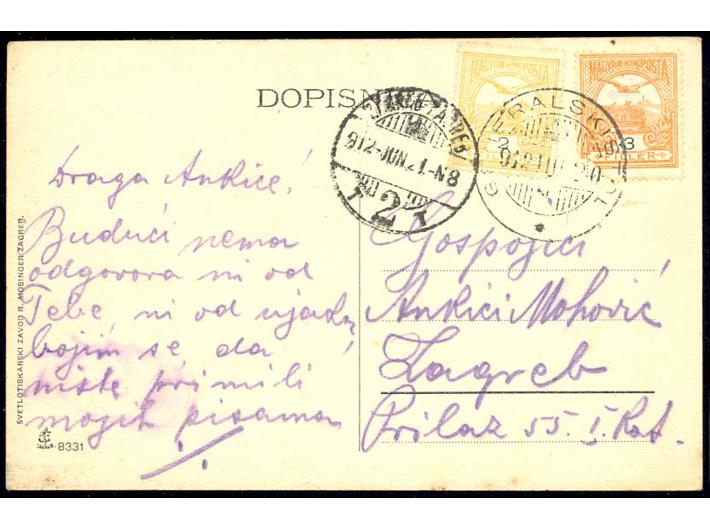 DOPISNICA
MAGYAR KIR. POSTA
2
MAGYAR KIR. POSTA
3
FILLER
912 JUN. 21-N8
2
Draga Ankice!
Budući nema
odgovora ni od
Tebe ni od ujaka,
bojim se da
niste primili
mojih pisama
Gospojici
Ankici Mohović
Zagreb
Prilaz 55. I. Kat.
SVETLOTISKARSKI ZAVOD R. MOSINGER ZAGREB.
8331